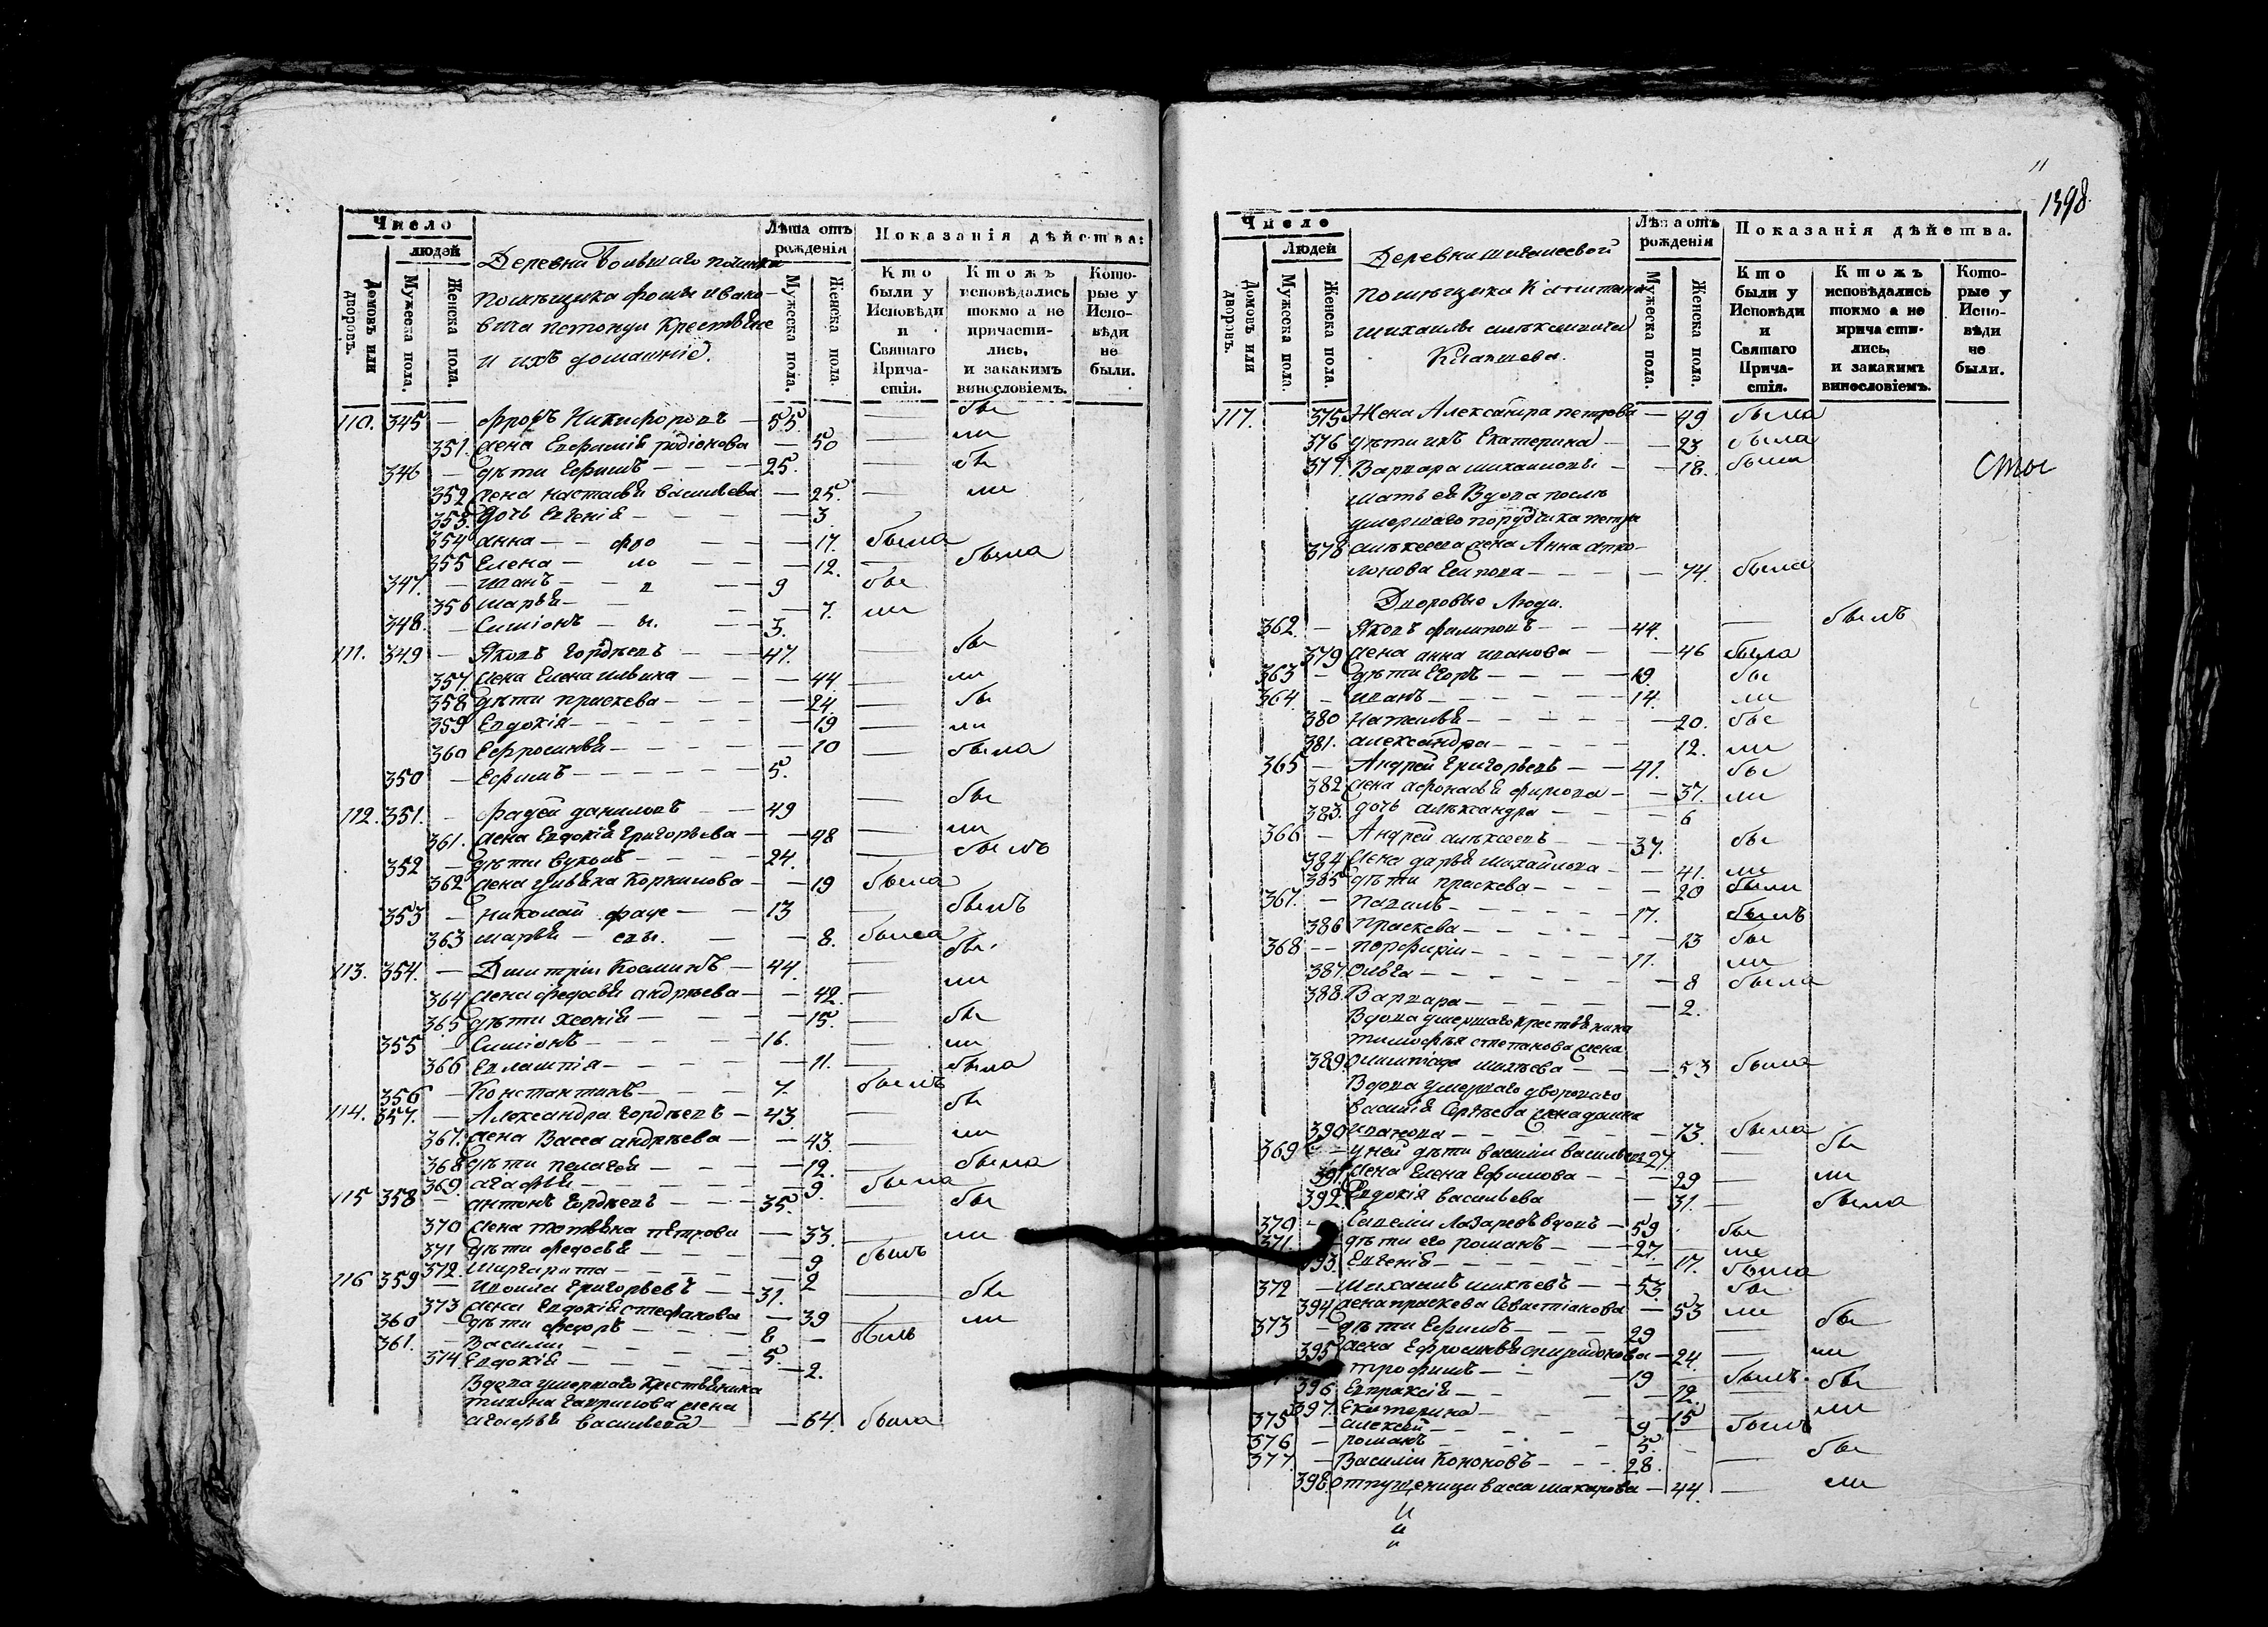 Число
людей
Домовъ или дворовъ.
Мужеска пола.
Женска пола.
Деревни Большаго починка
помѣщика Фомы Ивано-
вича крестьяне
и ихъ домашніе.
Лѣта отъ рожденія
Мужеска пола.
Женска пола.
Показанія дѣйства:
Кто были у Исповѣди и Святаго Прича-стія.
Ктожъ исповѣдались токмо а не причасти-лись, и закакимъ винословіемъ.
Кото-рые у Испо-вѣди не были.
110. 345 — Фролъ Никифоровъ — 55. — бы
351. жена Евфимія родіонова — 50 — ли
346 — дѣти Ефимъ — — — 25. — бы
352 жена настасья васильева — 25. — ли
353. Дочь Евгенія — — — 3
354 анна — — фро — — 17. была
355 Елена — ло — — 12. — была
347. — иванъ — в — — 9 бы
356 марья — — — 7. ли
348. — Симіонъ — ы. — — 3.
111. 349 — Яковъ Гордѣевъ — — 47. — бы
357. жена Елена ильина — — — 44. — ли
358 дѣти праскева — — — — 24. — бы
359 Евдокія — — — — 19 — ли
360 Ефросинья — — — — 10 — была
350 — Ефимъ — — — — 5.
112. 351. — фадей даниловъ — — 49 — бы
361. жена Евдокія григорьева — — 48 — ли
352 — дѣти вуколъ — — — 24. — былъ
362 жена ульяна Корнилова — — 19 была
353 — николай фаде — — 13 — былъ
363 марья — евы. — — 8. была
113. 354. — Дмитріи Косминъ — 44. — бы
364 жена федосья андрѣева — — 42. — ли
365 дѣти ксенія — — — 15. — бы
355 — Симіонъ — — — — 16. — ли
366 Евлампія — — — — 11. — была
356 — Константинъ — — 7. былъ
114. 357. — Александра гордѣевъ — 43. — бы
367. жена Васса андрѣева — — 43. — ли
368 дѣти пелагея — — — — 12. — была
369. агафья — — — — 9. была
115 358 — антонъ гордѣевъ — — — 35. — бы
370 жена татьяна петрова — 33. — ли
371 дѣти федосья — — — — 9 былъ
372. Маргарита — — — — 2
116 359 — григорьевъ — — 31. — бы
373 жена Евдокія стефанова — 39 — ли
360 — дѣти федоръ — — — 8 — былъ
361. — Василіи — — — — 5.
374 Евдокія — — — — 2.
Вдова умершаго крестьянина
гаврилова жена
агафья васильева — — 64. была
11
1398.
Число
Людей
Домовъ или дворовъ.
Мужеска пола.
Женска пола.
Деревни
помѣщика Капитана
михаилы алѣксѣевича
Лѣта отъ рожденія
Мужеска пола.
Женска пола.
Показанія дѣйства.
Кто были у Исповѣди и Святаго Прича-стія.
Ктожъ исповѣдались токмо а не причасти-лись, и закакимъ винословіемъ.
Кото-рые у Испо-вѣди не были.
117. 375 Жена Александра петрова — 49 была
376 дѣти ихъ Екатерина — — 23. была
377. Варвара михаиловы — — 18. была
мать ея Вдова послѣ
умершаго порутчика петра
378 алѣксеева жена Анна
Есипова — — — — 74. была
Дворовыю Люди.
362. — Яковъ филиповъ — — — 44. — былъ
379 жена анна иванова — — 46 была
363 — дѣти Егоръ — — — 19. бы
364 — иванъ — — — — 14. ли
380 Наталья — — — — 20. бы
381. александра — — — — 12. ли
365 — Андрей григорьевъ — — 41. бы
382 жена афонасья фирсова — — 37. ли
383. дочь алѣксандра — — — 6
366 — Андрей алѣксеевъ — — 37. бы
384 жена дарья михайлова — — 41. ли
385 дѣти праскева — — — 20 были
367. — павилъ — — — — 17. былъ
386 праскева — — — — 13 бы
368 — — порфиріи — — — 11. ли
387. Ольга — — — — 8 была
388. Варвара — — — — 2.
Вдова умершаго крестьянина
тимофѣя степанова жена
389 олимпіада — — — 53 была
Вдова умершаго дворового
василія Сергѣева жена
390 иванова — — — — 73. была
369 — у ней дѣти василіи васильевъ 27. — бы
391. жена Елена Ефимова — — 29 — ли
392. Евдокія васильева — 31. — была
370 — Савеліи Лазаревъ вдовъ — 59. бы
371. — дѣти его романъ — — 27. ли
393. Евгенія — — — — 17. была
372 — Михаилъ — — 53. бы
394 жена праскева Севастіанова — 53 ли
373 — дѣти Ефимъ — — — 29 — бы
395 жена Ефросинья спиридонова — 24. — ли
трофимъ — — 19 — былъ
396 Евпраксія — — — 12. бы
397. Екатерина — — — 15 — ли
375 — алексей — — — 9 былъ
376 — романъ — — — 5.
377. — Василіи Кононовъ — — — 28. — бы
398. отпущеница васса макарова — 44. — ли